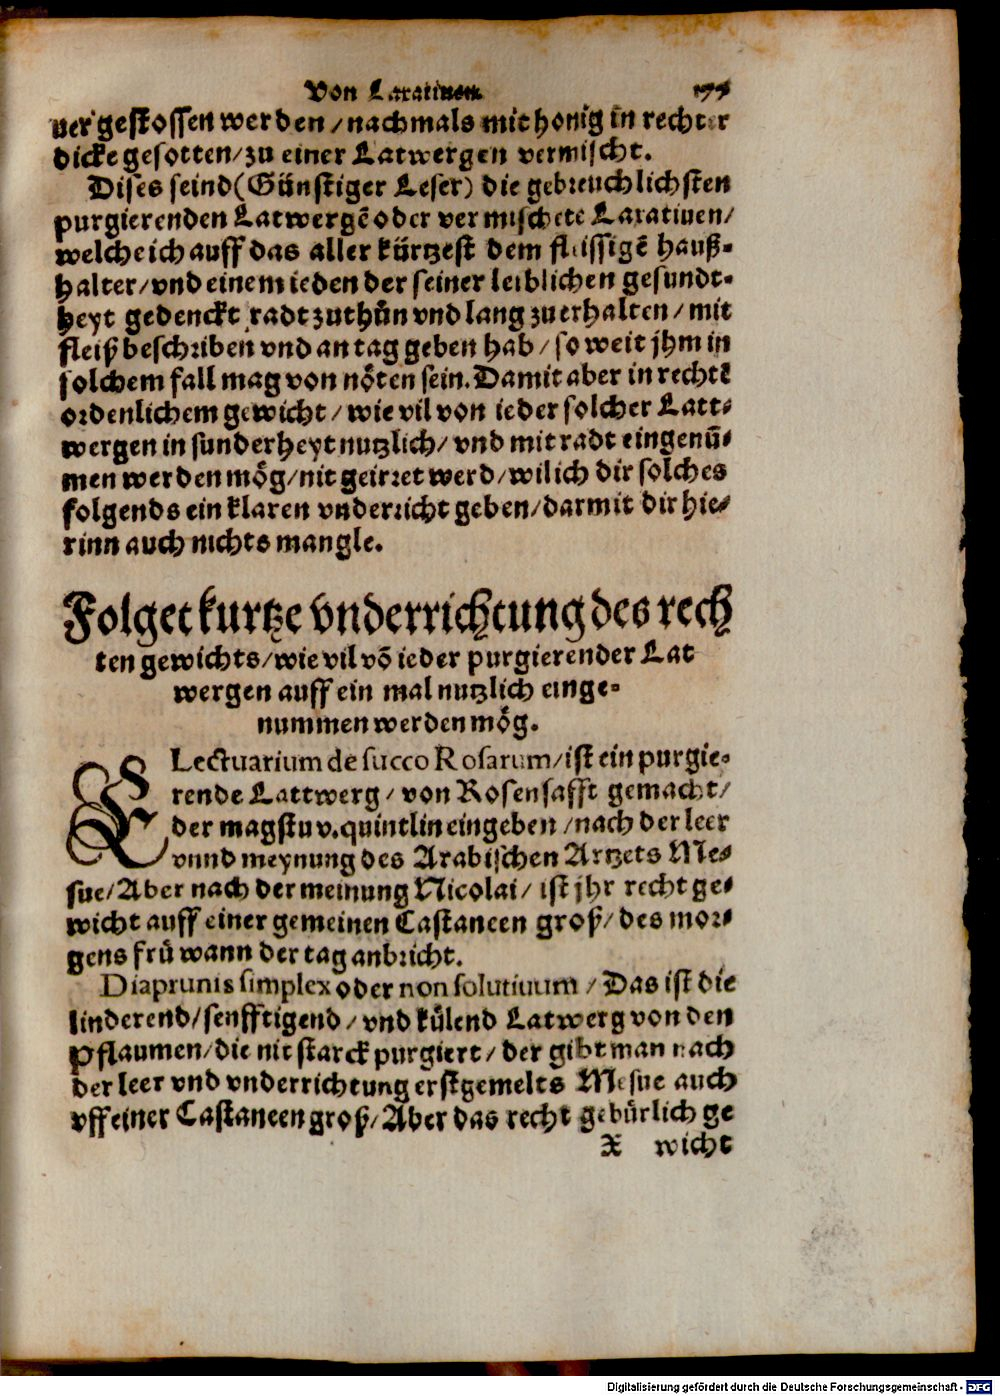 Von Laxatiuen.
uer gestossen werden/nachmals mit honig in rechter
dicke gesotten/zu einer Latwergen vermischt.
Dises seind (Günstiger Leser) die gebreuchlichsten
purgierenden Latwergē oder vermischete Laxatiuen/
welche ich auff das aller kürtzest dem fleissigē hauß-
halter/vnd einem ieden der seiner leiblichen gesundt-
heyt gedenckt radt zuthůn vnd lang zuerhalten/mit
fleiß beschriben vnd an tag geben hab/so weit jhm in
solchem fall mag von nöten sein. Damit aber in rechtē
ordenlichem gewicht/wie vil von ieder solcher Latt-
wergen in sunderheyt nutzlich/vnd mit radt eingenū-
men werden mög/nit geirret werd/wil ich dir solches
folgends ein klaren vnderricht geben/darmit dir hie-
rinn auch nichts mangle.
Folget kurtze vnderrichtung des rech
ten gewichts/wie vil vō ieder purgierender Lat
wergen auff ein mal nutzlich einge-
nummen werden mög.
ELectuarium de succo Rosarum/ist ein purgie-
rende Lattwerg/von Rosensafft gemacht/
der magstu v. quintlin eingeben/nach der leer
vnnd meynung des Arabischen Artzets Me-
sue/Aber nach der meinung Nicolai/ist jhr recht ge-
wicht auff einer gemeinen Castaneen groß/des mor-
gens frů wann der tag anbricht.
Diaprunis simplex oder non solutiuum/Das ist die
linderend/senfftigend/vnd kůlend Latwerg von den
Pflaumen/die nit starck purgiert/der gibt man nach
der leer vnd vnderrichtung erstgemelts Mesue auch
vff einer Castaneen groß/Aber das recht gebürlich ge
X wicht
Digitalisierung gefördert durch die Deutsche Forschungsgemeinschaft - DFG